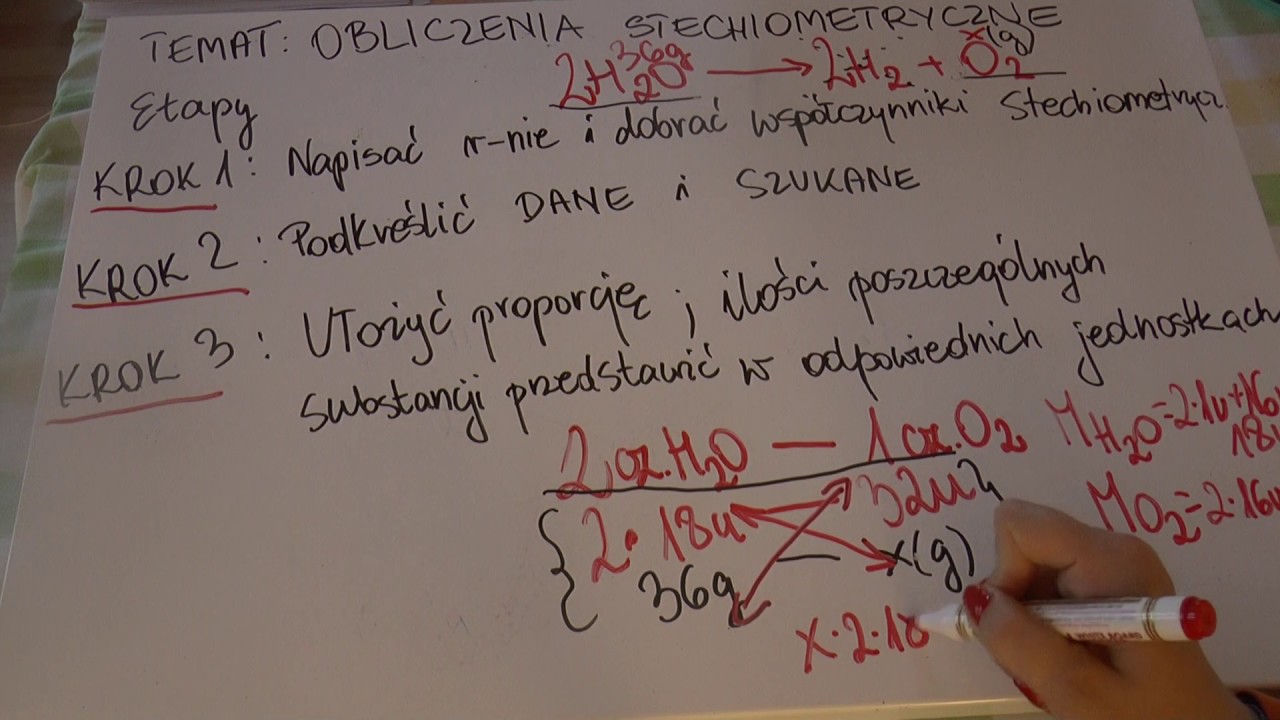 TEMAT: OBLICZENIA STECHIOMETRYCZNE
36g x(g)
2H2O → 2H2 + O2
Etapy
KROK 1: Napisać r-nie i dobrać współczynniki stechiometrycz.
KROK 2: Podkreślić DANE i SZUKANE
KROK 3: Ułożyć proporcję; ilości poszczególnych
substancji przedstawić w odpowiednich jednostkach
2 cz. H2O — 1 cz. O2
MH2O=2·1u+16u
18u
2·18u 32u
MO2=2·16u
36g — x(g)
x·2·18